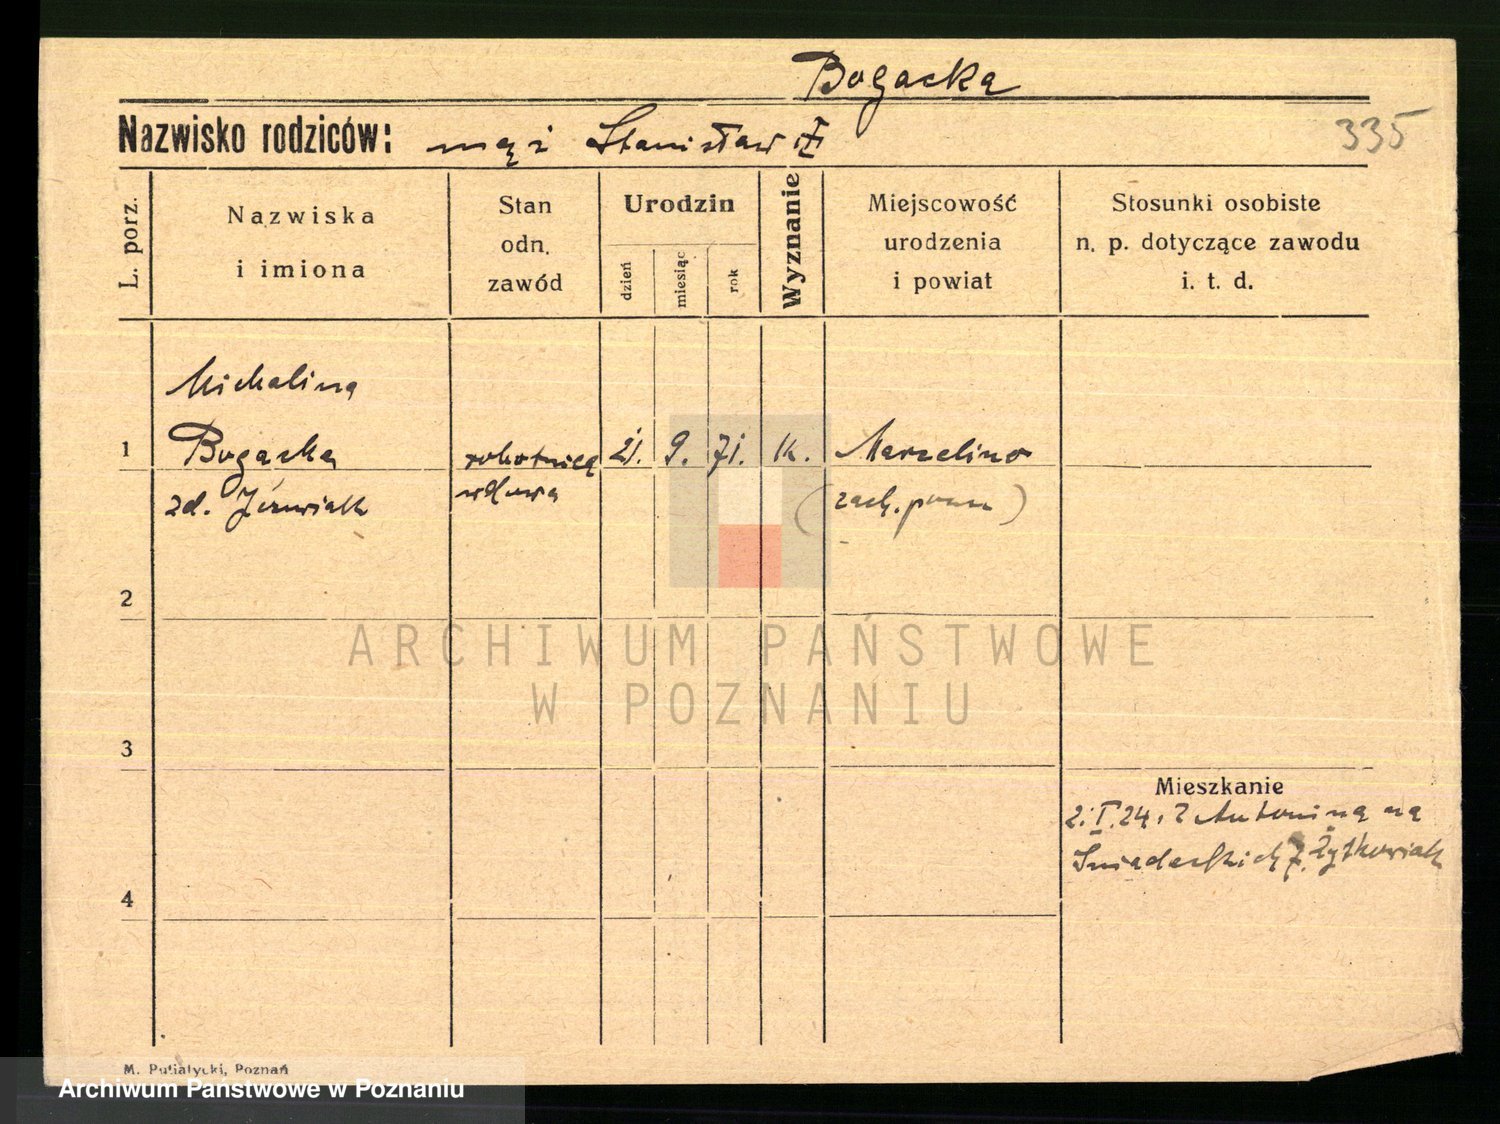 Bogacka
Nazwisko rodziców: mąż Stanisław
335
L. porz.
Nazwiska
i imiona
Stan
odn.
zawód
Urodzin
dzień
miesiąc
rok
Wyznanie
Miejscowość
urodzenia
i powiat
Stosunki osobiste
n. p. dotyczące zawodu
i. t. d.
Michalina
1 Bogacka robotnica 21. 9. 71. k. Marcelino
zd. wdowa (zach.
2
3
4
Mieszkanie
2.I.24. Antonina
Śniadeckich 7. Żytkowiak
ARCHIWUM PAŃSTWOWE
W POZNANIU
M. Putiatycki, Poznań
Archiwum Państwowe w Poznaniu